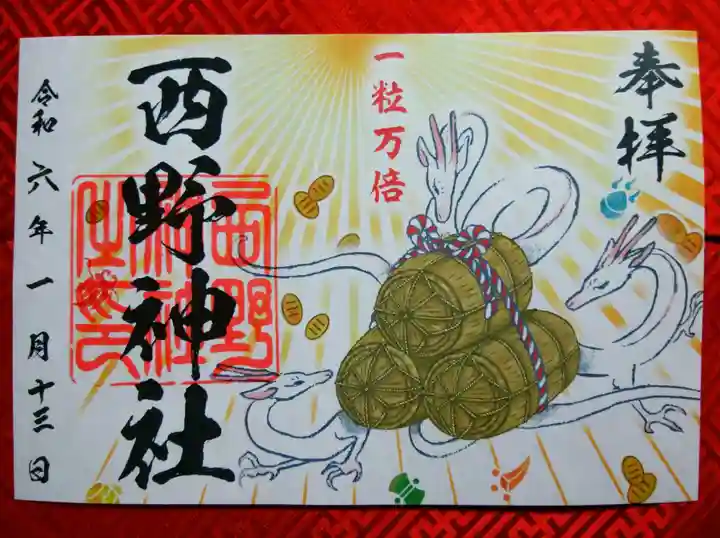 奉拝
一粒万倍
西野神社
西野
神社
之印
令和六年一月十三日